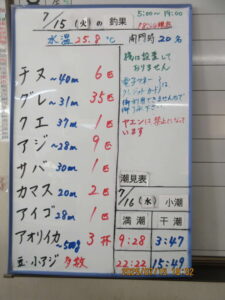 7/15(火)の釣果
5:00~19:00
水温25.8℃
開門時20名
チヌ~40cm 6匹
グレ~31cm 35匹
クエ 37cm 1匹
アジ~28cm 9匹
サバ 30cm 1匹
カマス 20cm 2匹
アイゴ 28cm 1匹
アオリイカ~500g 3杯
豆・小アジ 多数
銭に設置して
おりません
電子マネー
クレジットカード
御利用できませんので
ヤエンは禁止になって
います
潮見表
7/16(水) 小潮
満潮 干潮
9:28 3:47
22:22 15:49